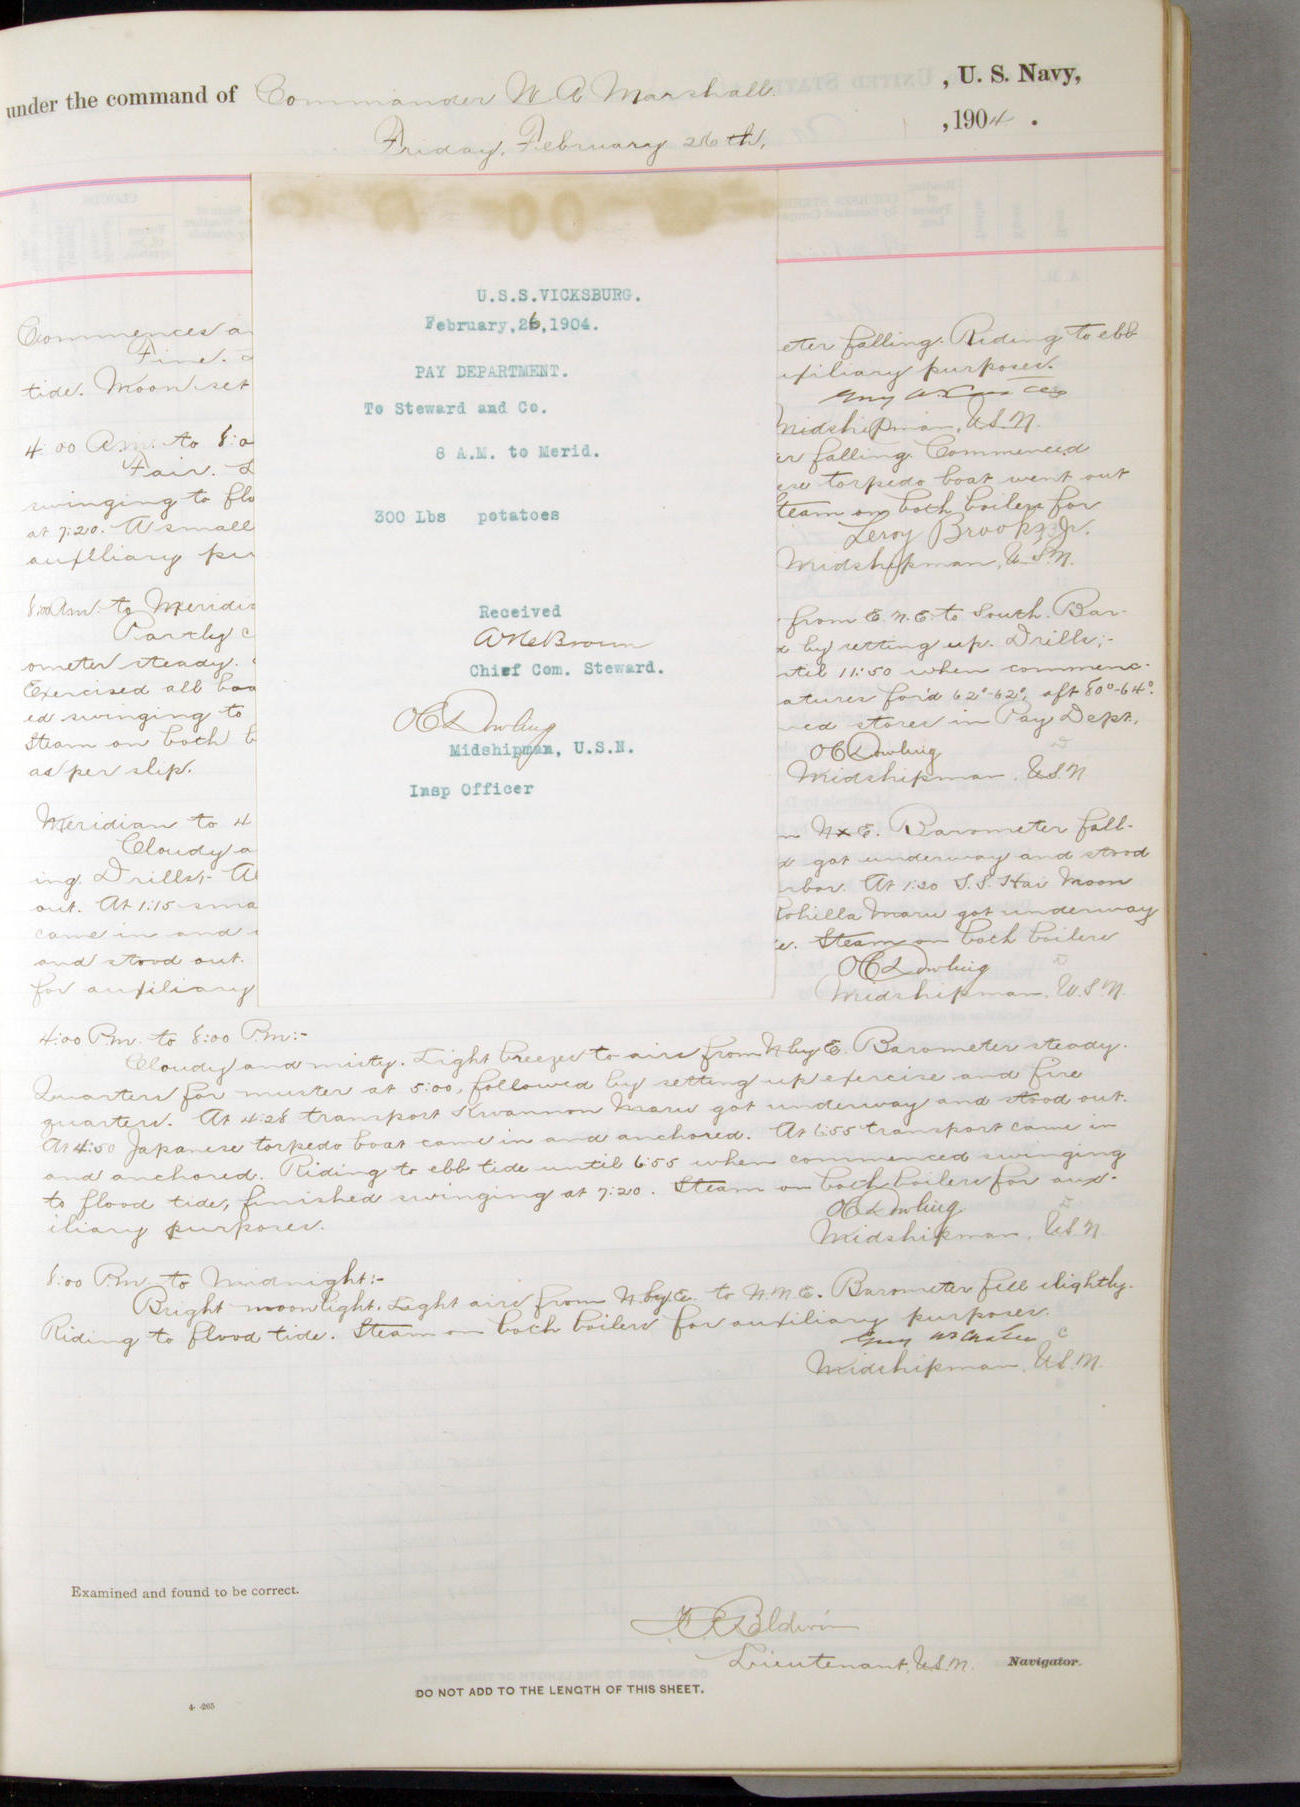 under the command of Commander W A Marshall , U. S. Navy,
Friday, February 26th, , 1904 .
U.S.S.VICKSBURG.
February,26,1904.
PAY DEPARTMENT.
To Steward and Co.
8 A.M. to Merid.
300 Lbs potatoes
Received
Chief Com. Steward.
O C Dowling
Midshipman, U.S.N.
Insp Officer
Commences a
eter falling. Riding to ebb
Fine.
uxiliary purposes.
tide. Moon set
Midshipman, U.S.N.
4:00 A.m. to 8:0
er falling. Commenced
Fair. L
ese torpedo boat went out
swinging to flo
steam on both boilers for
at 7:20. A small
Leroy Brooks Jr.
auxiliary pur
Midshipman, U.S.N.
8:00 Am. to Meridia
from E.N.E. to South. Bar-
Partly c
d by setting up. Drills;-
ometer steady.
ntil 11:50 when commenc-
Exercised all boa
atures for'd 62°-62°, aft 80°-64°.
ed swinging to
ved stores in Pay Dept.
Steam on both b
O C Dowling
as per slip.
Midshipman, U.S.N
Meridian to 4
m NxE. Barometer fall-
Cloudy a
d got underway and stood
ing. Drills;- A
rbor. At 1:20 S.S. Hai Moon
out. At 1:15 sma
Rohilla Maru got underway
came in and
e. Steam on both boilers
and stood out.
O C Dowling
for auxiliary
Midshipman, U.S.N.
4:00 Pm. to 8:00 P.m:-
Cloudy and misty. Light breezes to airs from N by E. Barometer steady.
Quarters for muster at 5:00, followed by setting up exercise and fire
quarters. At 4:28 transport Kwannon Maru got underway and stood out.
At 4:50 Japanese torpedo boat came in and anchored. At 6:55 transport came in
and anchored. Riding to ebb tide until 6:55 when commenced swinging
to flood tide, finished swinging at 7:20. Steam on both boilers for aux-
iliary purposes.
O C Dowling
Midshipman, U.S.N.
8:00 Pm. to Midnight:-
Bright moonlight. Light airs from N.by.E. to N.N.E. Barometer fell slightly.
Riding to flood tide. Steam on both boilers for auxiliary purposes.
Midshipman, U.S.N.
Examined and found to be correct.
Baldwin
Lieutenant, U.S.N. Navigator.
DO NOT ADD TO THE LENGTH OF THIS SHEET.
4-265